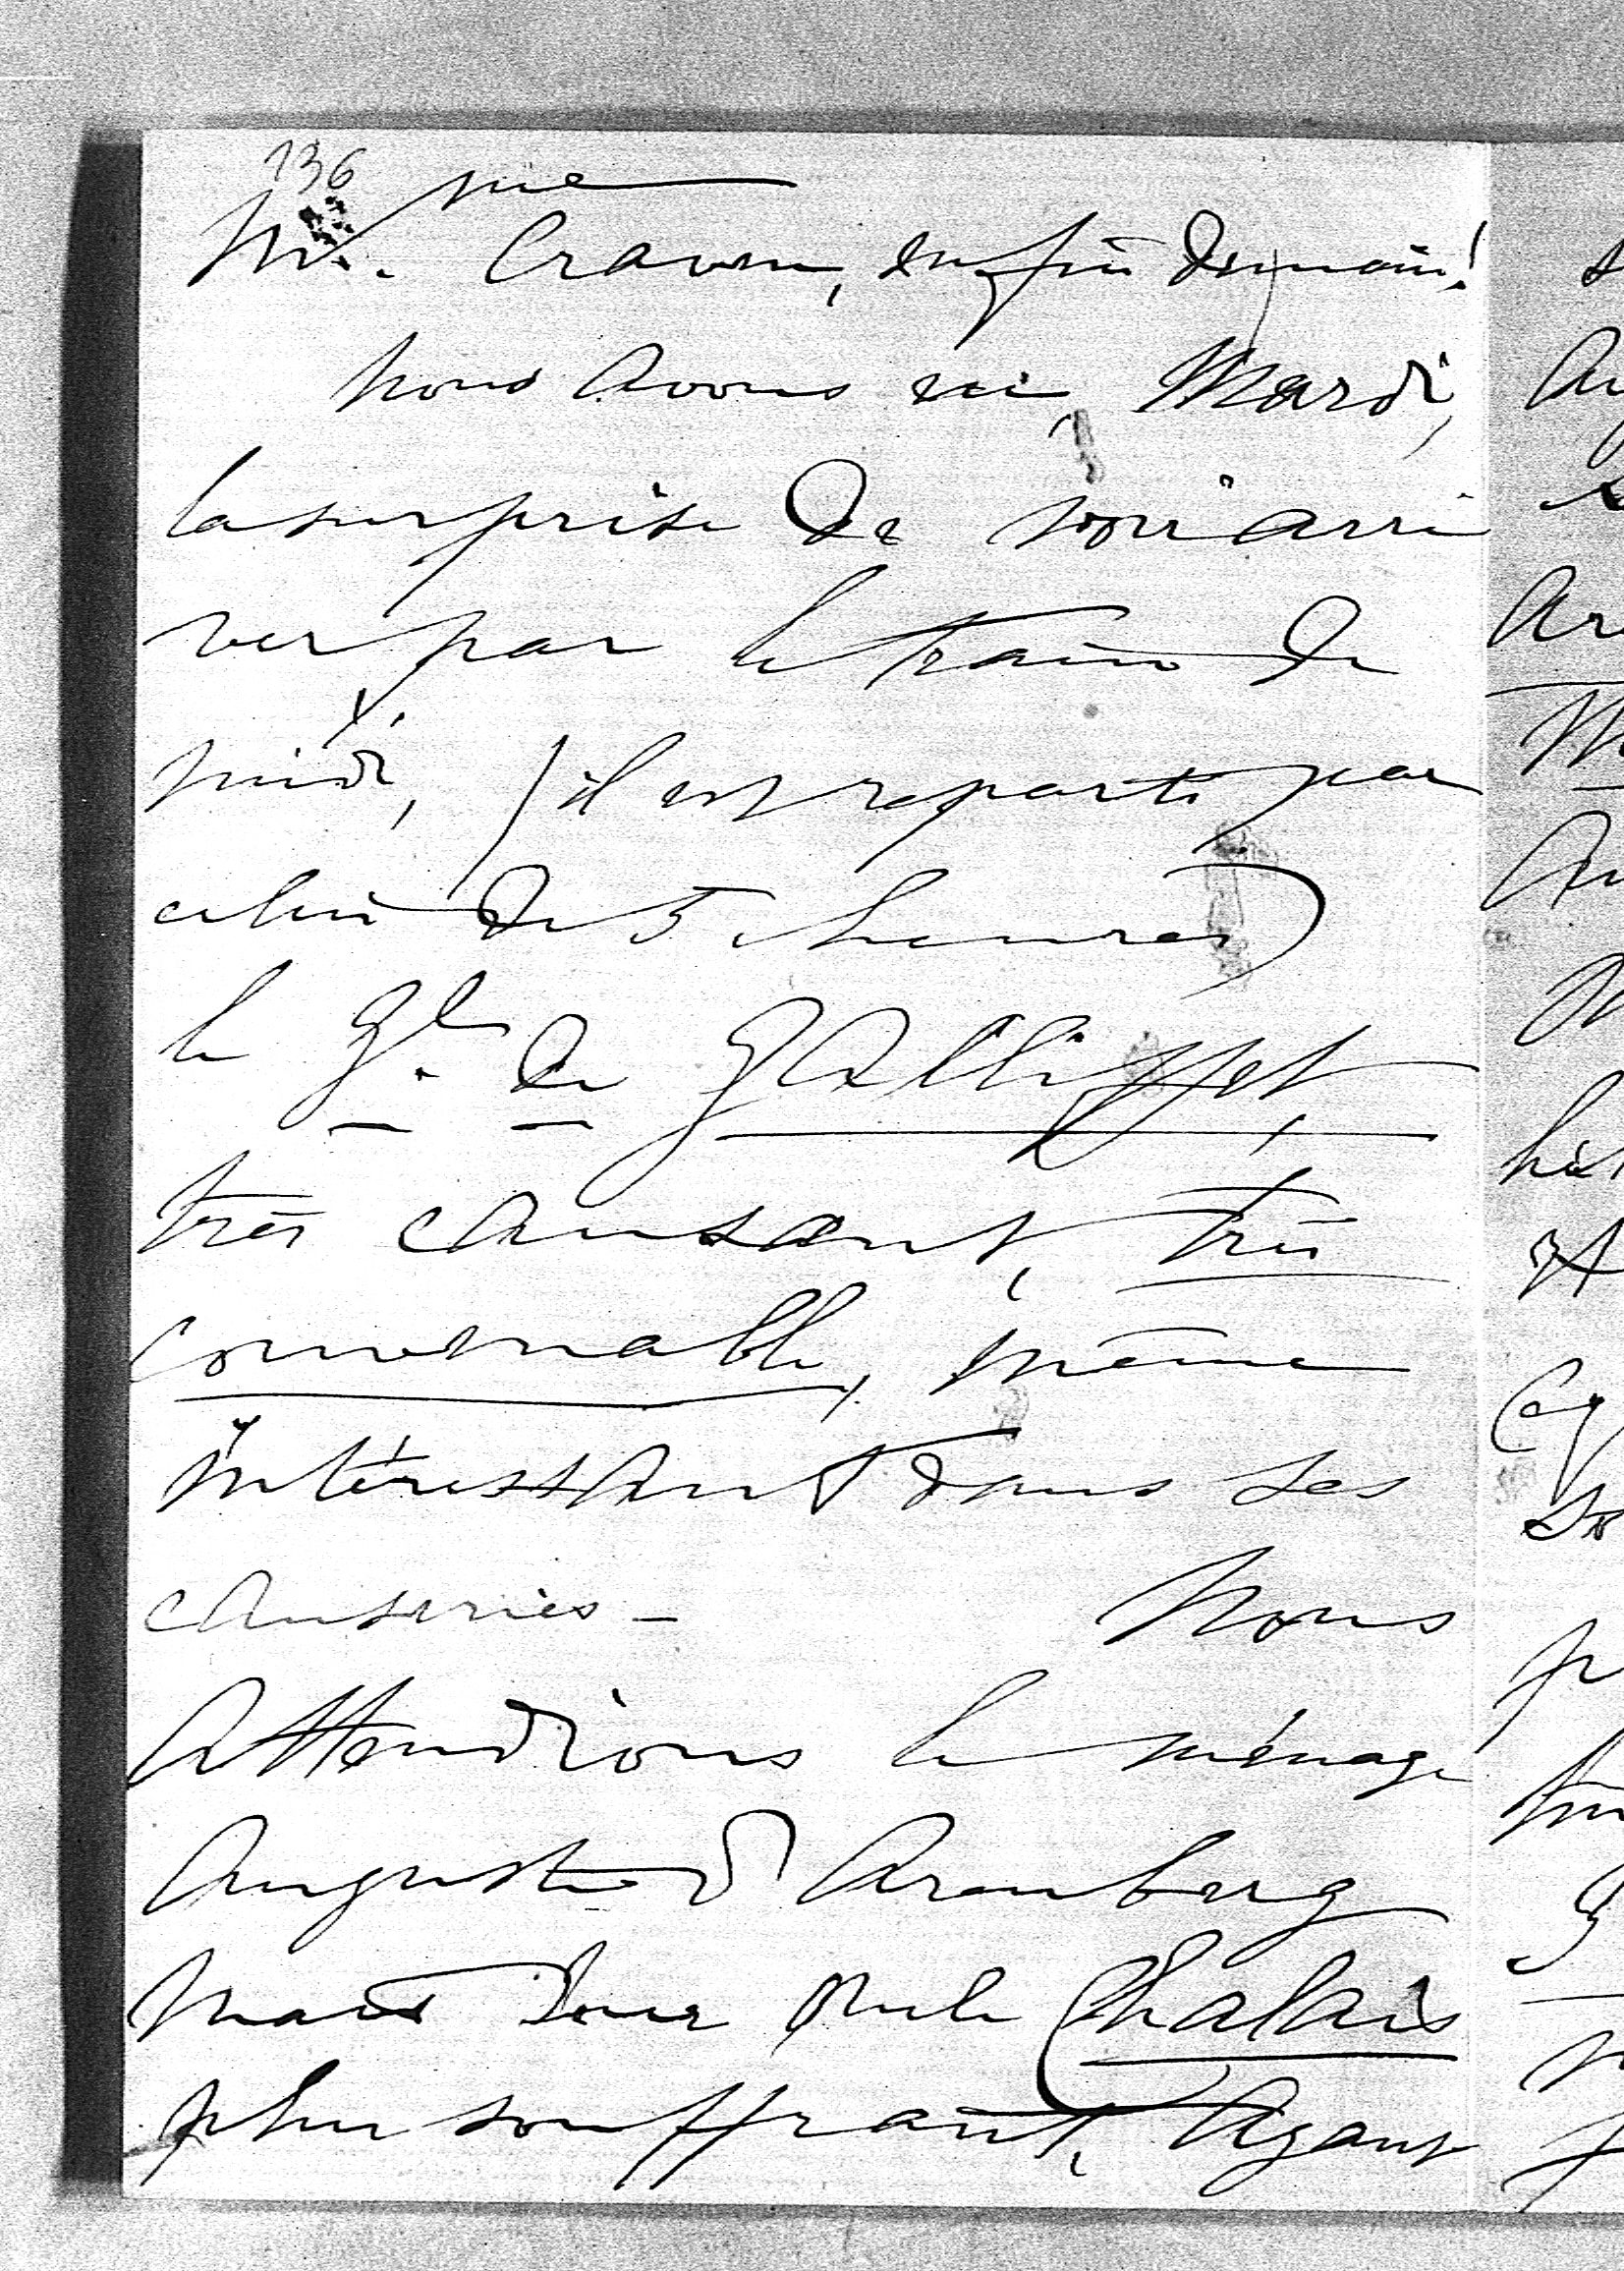 136
Mme. Craven, enfin demain!
Nous avons eu, Mardi,
la surprise de voir arri
ver par le train de
midi, (il est reparti par
celui de 5 heures)
le Gl. de Galliffet,
très causant, très
convenable, même
intéressant dans ses
causeries - Nous
Attendions le ménage
Auguste d'Arenberg
mais Chalais
plus souffrant, Ayant